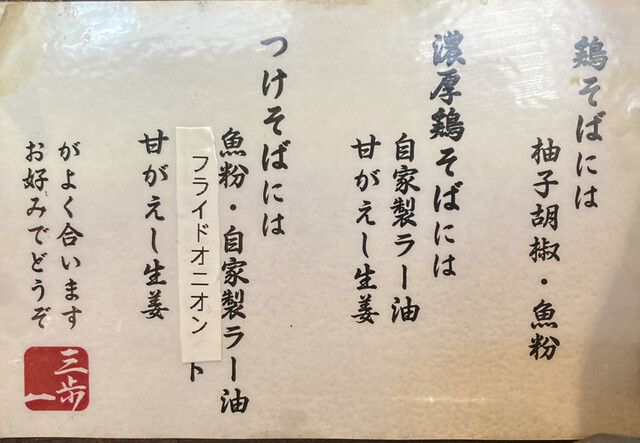 鶏そばには
柚子胡椒・魚粉
濃厚鶏そばには
自家製ラー油
甘がえし生姜
つけそばには
魚粉・自家製ラー油
フライドオニオン
ト
甘がえし生姜
がよく合います
お好みでどうぞ
三歩一